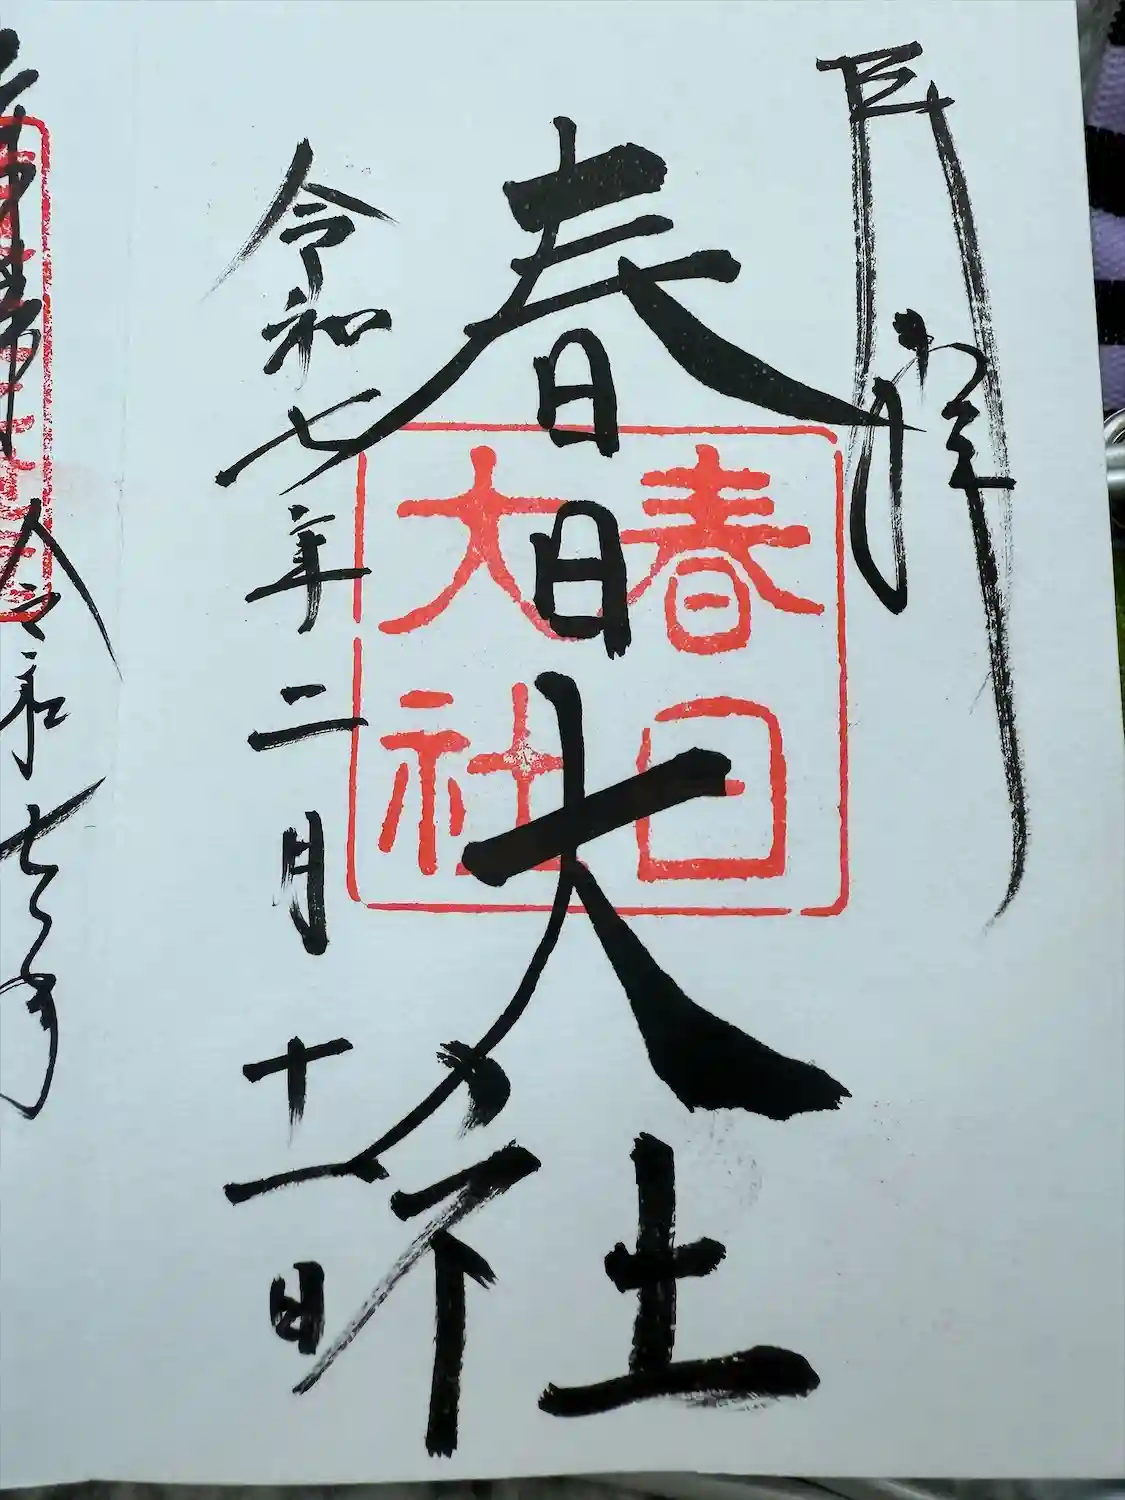 春日大社
春日
大社
令和七年二月十一日
令和七年